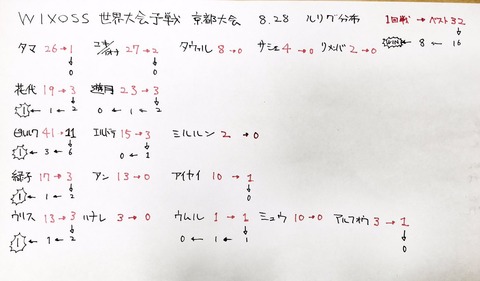 WIXOSS 世界大会予戦 京都大会 8.28 ルリグ分布 1回戦 → ベスト32
タマ 26→1 27→2 タウィル 8→0 サシェ 4→0 リメンバ 2→0 ← 8 ← 16
0 0
花代 19→3 遊月 23→3
1 ← 1 ← 2 0 ← 1 ← 2
ピルルク 41→11 エルドラ 15→3 ミルルン 2→0
1 ← 3 ← 6 0 ← 1
緑子 17→3 アン 13→0 アイヤイ 10→1
1 ← 1 ← 2 0
ウリス 13→3 ハナレ 3→0 ウムル 1→1 ミュウ 10→0 アルフォウ 3→1
1 ← 1 ← 2 0 ← 1 ← 1 0